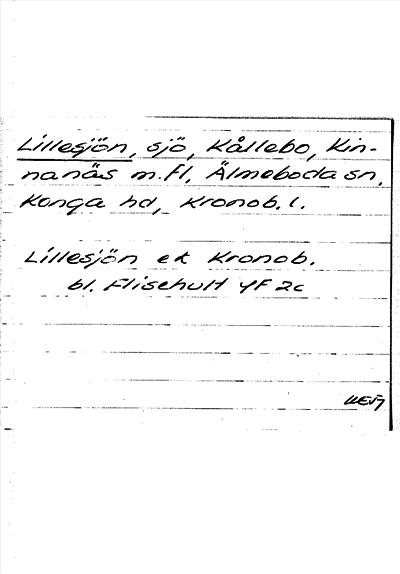 Lillesjön, sjö, Kållebo, Kin-
nanäs m.fl, Älmeboda sn,
Konga hd, Kronob. l.
Lillesjön ek Kronob.
bl. Flisehult 4F 2c